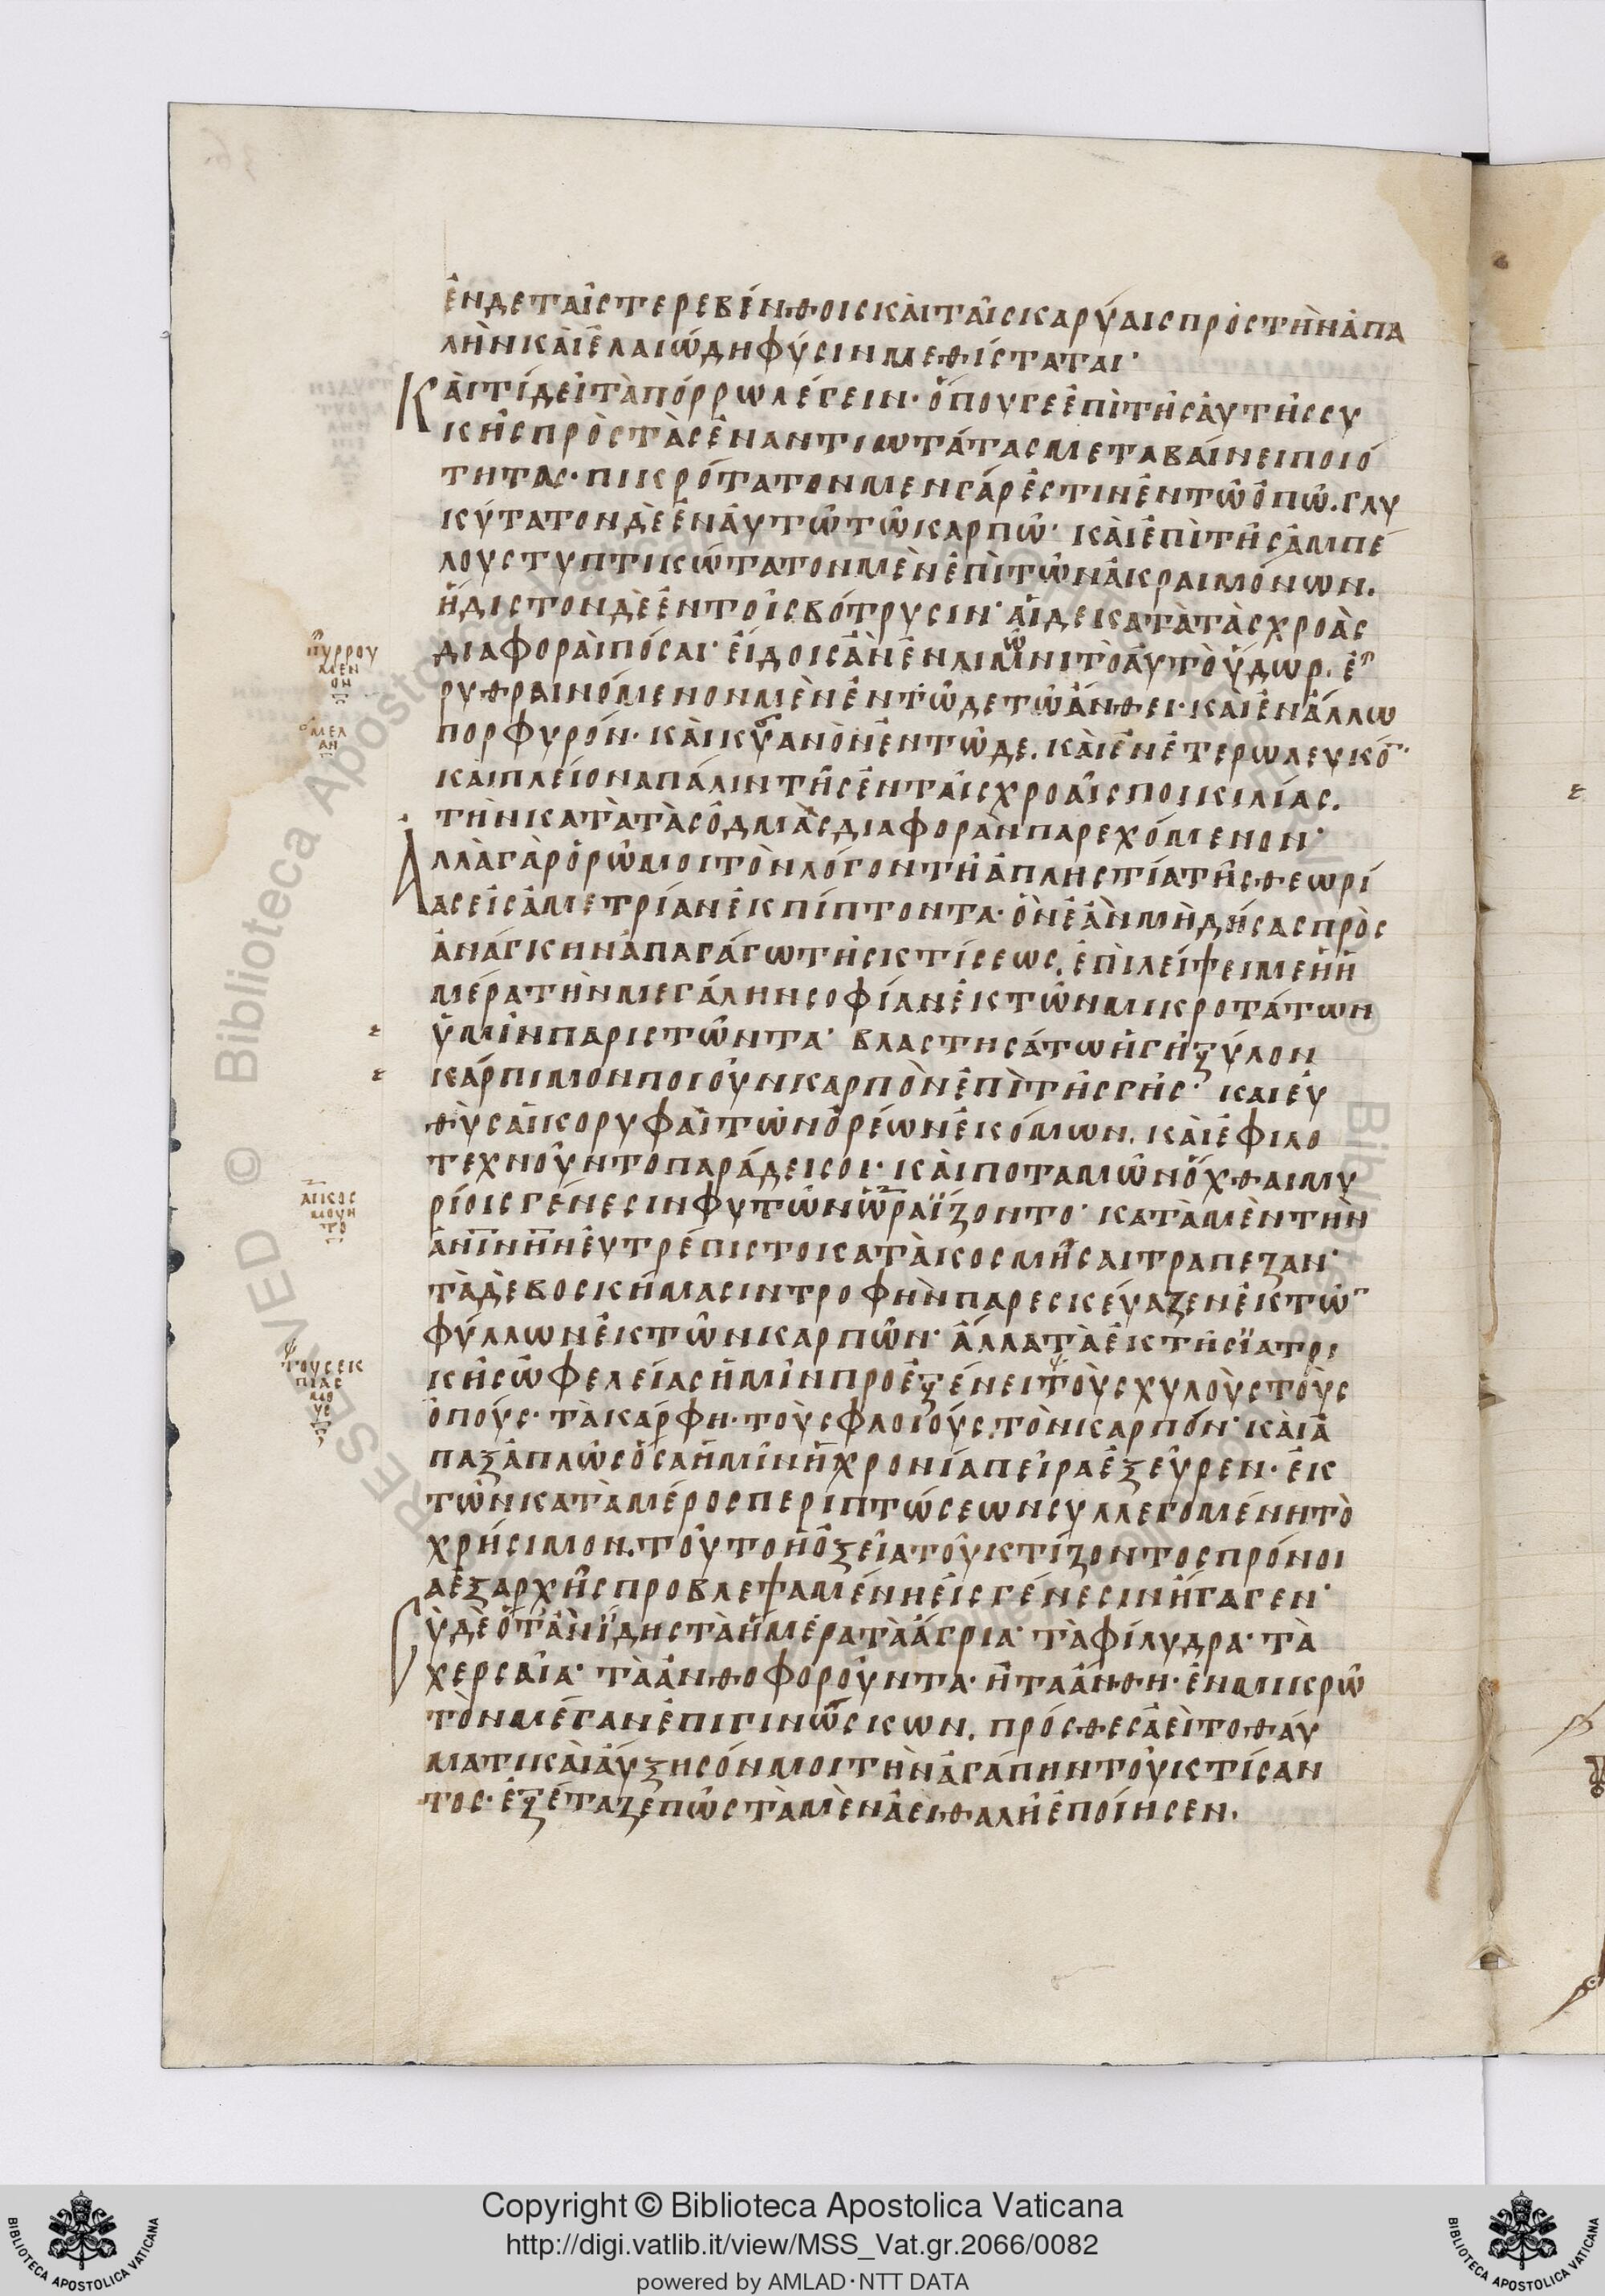 ἐν δὲ ταῖς τερεβίνθοις καὶ ταῖς καρύαις πρὸς τὴν ἁπα
λὴν καὶ ἐλαιώδη φύσιν μεθίσταται·
Καὶ τί δεῖ τὰ πόρρω λέγειν· ὅπου γε ἐπὶ τῆς αὐτῆς συ
κῆς πρὸς τὰς ἐναντιωτάτας μεταβαίνει ποιό
τητας· πικρότατον μεν γάρ ἐστιν ἐν τῶ ὀπῶ. γλυ
κύτατον δὲ ἐν αὐτῶ τῶ καρπῶ· καὶ ἐπὶ τῆς ἀμπέ
λου στυπτικώτατον μὲν ἐπὶ τῶν ἀκραιμόνων.
ἥδιστον δὲ ἐν τοῖς βότρυσιν· αἵ δε κατὰ τὰς χροὰς
διαφοραὶ πόσαι· εἴδοις ἂν ἐν λιμῶνι τὸ αὐτὸ ὕδωρ. ἐ
ρυθραινόμενον μὲν ἐν τῶδε τῶ ἄνθει· καὶ ἐν ἄλλω
πορφυρόν· καὶ κυανὸν ἐν τῶδε. καὶ ἐν ἑτέρω λευκόν·
καὶ πλείονα πάλιν τῆς ἐν ταῖς χροαῖς ποικιλίας.
τὴν κατὰ τὰς ὀδμὰς διαφορὰν παρεχόμενον·
Ἀλλὰ γὰρ ὁρῶ μοι τὸν λόγον τῆ ἀπληστία τῆς θεωρί
ας εἰς ἀμετρίαν ἐκπίπτοντα· ὃν ἐὰν μὴ δήσας πρὸς
ἀνάγκην ἀπαγάγω τῆς κτίσεως. ἐπιλείψει με ἡ ἡ
μέρα τὴν μεγάλην σοφίαν ἐκ τῶν μικροτάτων
ὑμῖν παριστῶντα· βλαστησάτω ἡ γῆ ξύλον
κάρπιμον ποιοῦν καρπὸν ἐπὶ τῆς γῆς· καὶ εὐ
θὺς αἱ κορυφαὶ τῶν ὀρέων ἐκόμων. καὶ ἐφιλο
τεχνοῦντο παράδεισοι· καὶ ποταμῶν ὄχθαι μυ
ρίοις γένεσιν φυτῶν ὡραΐζοντο· κατὰ μὲν τὴν
ἀνίνην ηὐτρέπιστο κατακοσμῆσαι τραπεζαν·
τὰ δὲ βοσκήμασιν τροφὴν παρεσκεύαζεν ἐκ τῶν
φύλλων ἐκ τῶν καρπῶν· ἄλλα τὰ ἐκ τῆς ἰατρι
κῆς ὠφελείας ἡμῖν προεξένει τοὺς χυλοὺς τοὺς
ὀπούς· τὰ κάρφη· τοὺς φλοιούς. τὸν καρπόν· καὶ ἁ
παξάπλῶς ὅσα ἡμῖν ἡ χρονία πεῖρα ἐξεῦρεν· ἐκ
τῶν κατὰ μέρος περιπτώσεων συλλεγομένη τὸ
χρήσιμον. τοῦτο ἡ ὀξεῖα τοῦ κτίζοντος πρόνοι
α ἐξαρχῆς προβλεψαμένη εἰς γένεσιν ἤγαγεν·
Σὺ δὲ ὅτἂν ἴδης τὰ ἥμερα τὰ ἄγρια· τὰ φίλυδρα· τὰ
χερσαῖα· τὰ ἀνθοφοροῦντα· ἢ τα ἄνθη· ἐν μικρῶ
τὸν μέγαν ἐπιγινώσκων. πρόσθες ἀεὶ τὸ θαύ
ματι καὶ αὔξησόν μοι τὴν ἀγάπην τοῦ κτίσαν
τος· ἐξέταζε πῶς τὰ μὲν ἀειθαλῆ ἐποίησεν.
πυρρου
μεν
ον
μελ
αν
απκος
μουν
το
τους εκ
πιας
μο
υς
Copyright © Biblioteca Apostolica Vaticana
http://digi.vatlib.it/view/MSS_Vat.gr.2066/0082
powered by AMLAD·NTT DATA